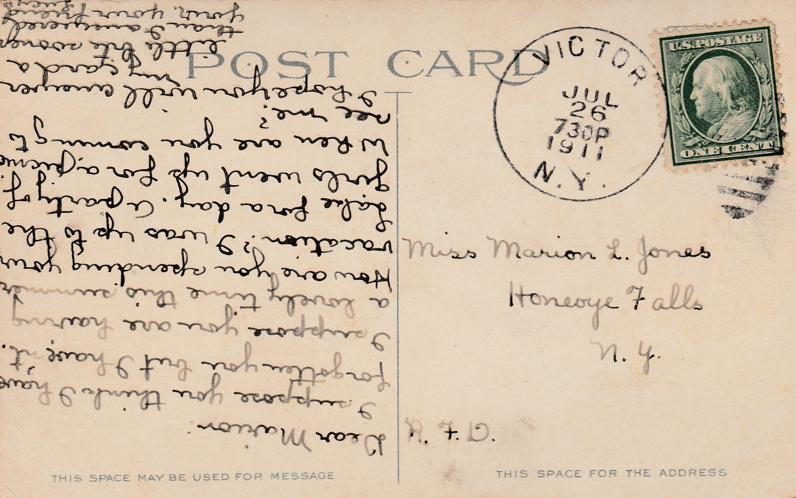 POST CARD
VICTOR
JUL
26
730P
1911
N.Y.
U.S. POSTAGE
ONE CENT
Miss Marion L. Jones
Honeoye Falls
N. Y.
R. F. D.
Dear Marion:
I suppose you think I have
forgotten you but I haven't.
I suppose you are having
a lovely time this summer
How are you spending your
vacation? I was up to the
Lake for a day. A party of
girls went up for a picnic
When are you coming to
see me?
I hope you will answer
my card a
little bit sooner
than I answered
your
THIS SPACE MAY BE USED FOR MESSAGE
THIS SPACE FOR THE ADDRESS